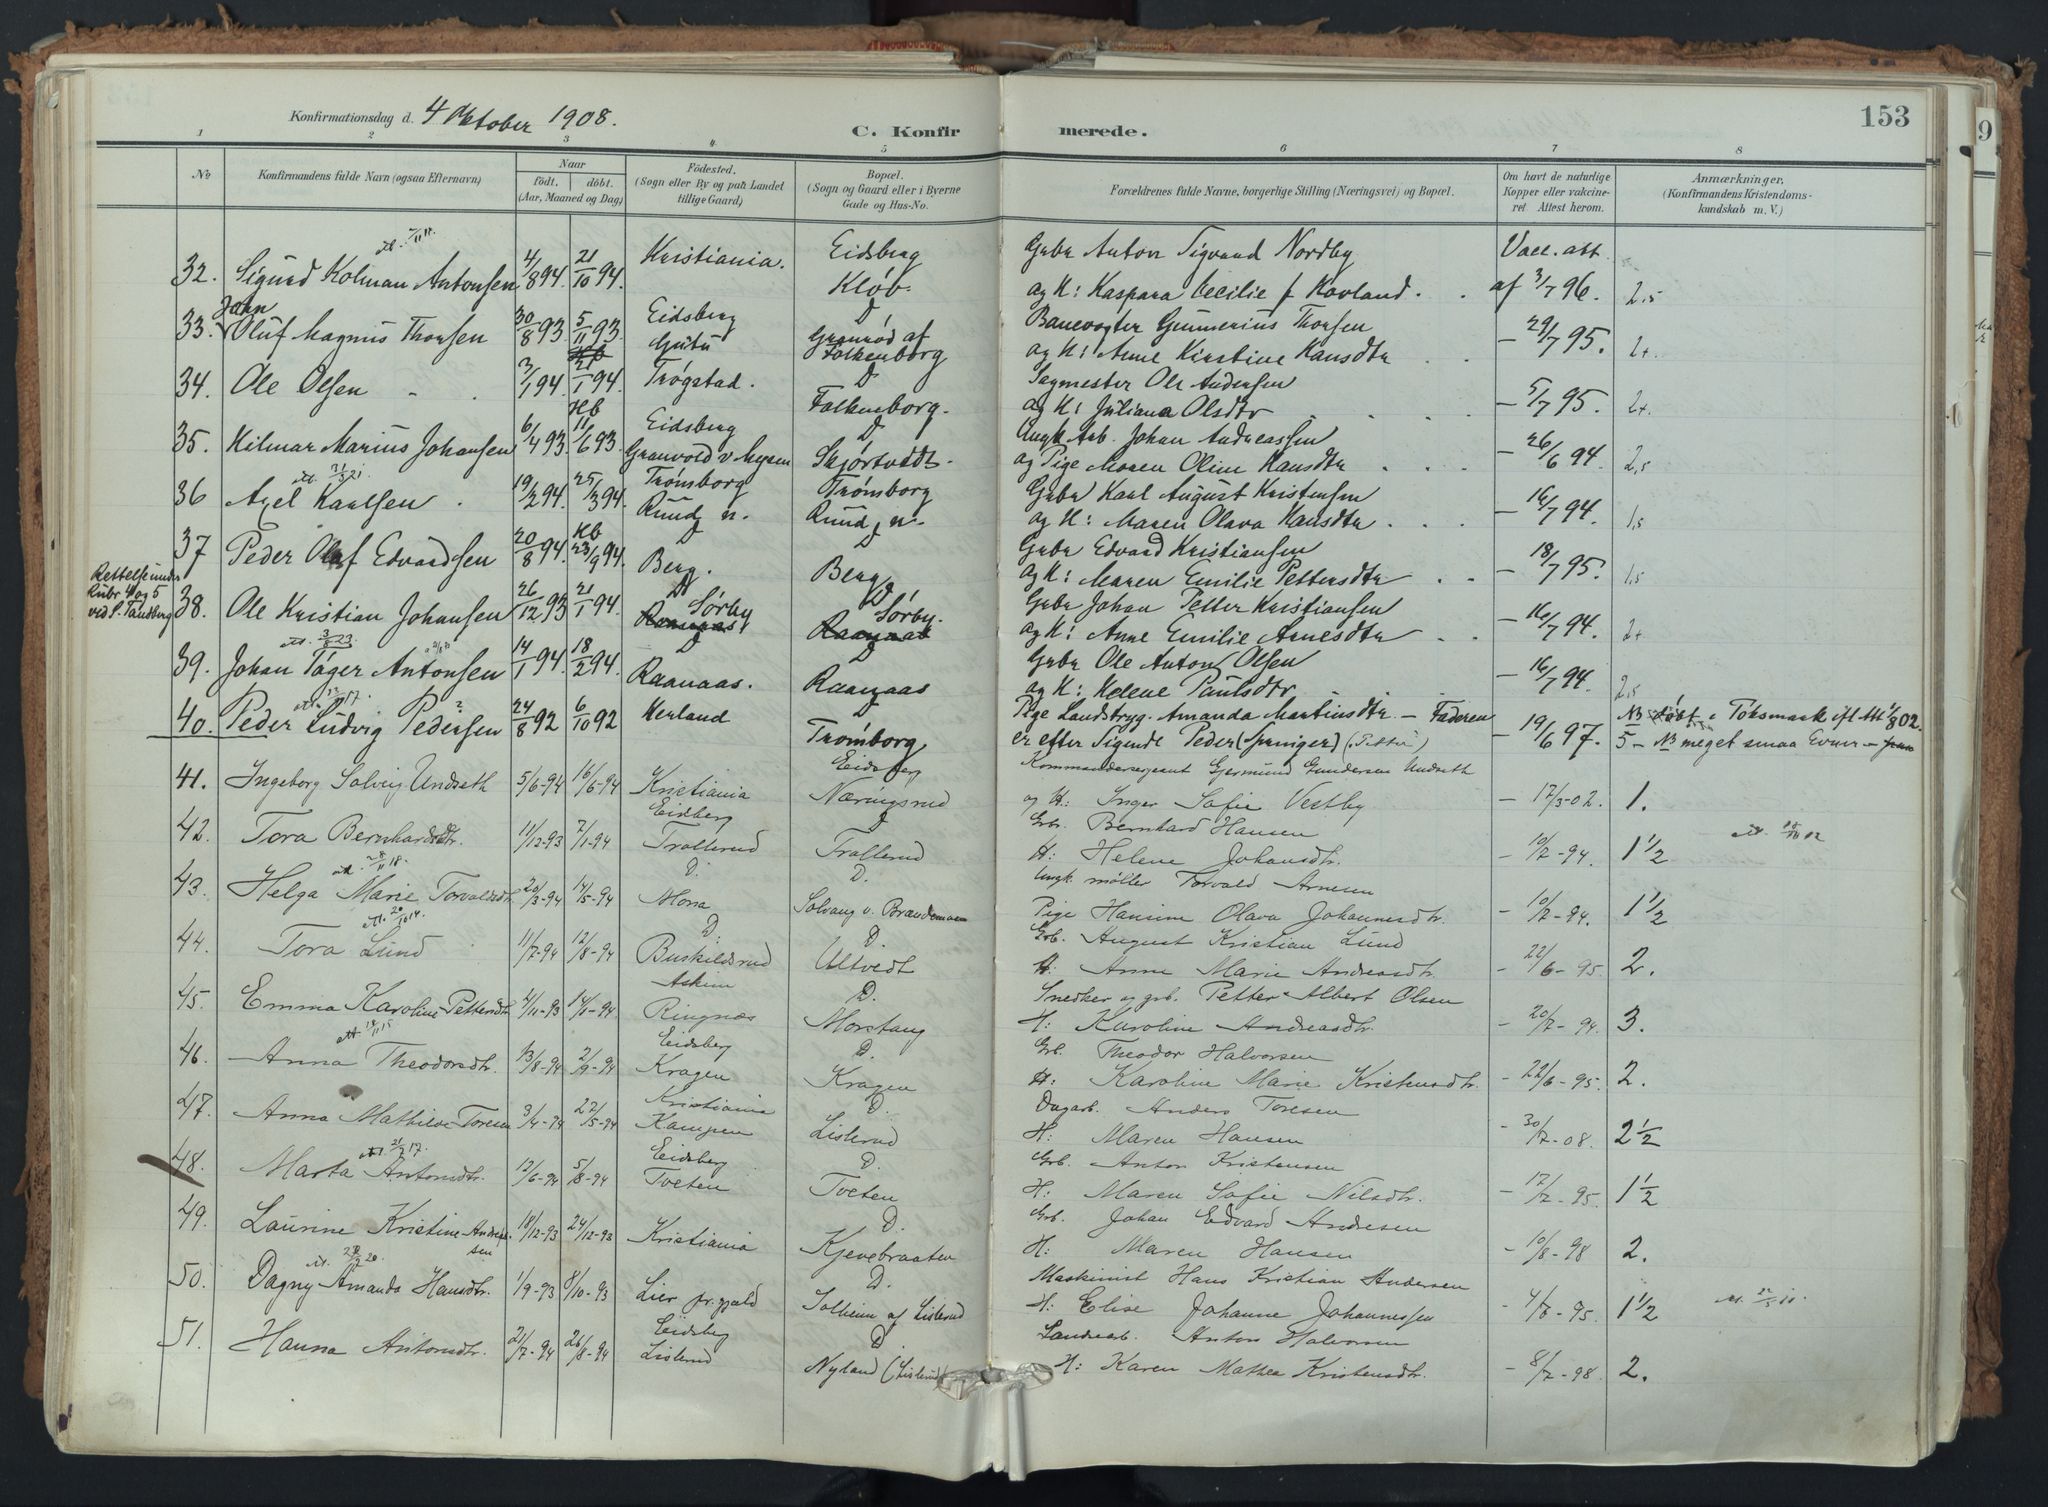 Konfirmationsdag d. 4 Oktober 1908.
C. Konfirmerede.
153
1 2 3 4 5 6 7 8
No
Konfirmandens fulde Navn (ogsaa Efternavn)
Naar
födt. döbt.
(Aar, Maaned og Dag)
Födested.
(Sogn eller By og paa Landet
tillige Gaard)
Bopæl.
(Sogn og Gaard eller i Byerne
Gade og Hus-No.
Forældrenes fulde Navne, borgerlige Stilling (Næringsvei) og Bopæl.
Om havt de naturlige
Kopper eller vakcine-
ret Attest herom.
Anmærkninger,
(Konfirmandens Kristendoms-
kundskab m. V.)
Kristiania. Eidsberg Gbr Anton Sigvand Nordby Vacc. att.
32. Sigurd Kolman Antonsen 4/8 94. 21/10 94. Kløb. og H: Kaspara Cecilie f Hovland. af 3/7 96. 2,5
John Eidsberg D Banevogter Gunnerius Thorsen
33. Oluf Magnus Thorsen 30/8 93. 5/11 93. Grønød af Falkenborg og H: Anne Kirstine Hansdtr - 29/7 95. 2+.
Trøgstad. D Sagmester Ole Andersen
34. Ole Olsen 3/1 94. 21/1 94. Falkenborg. og H: Juliana Olsdtr - 5/7 95. 2+.
Hb Eidsberg D Ungk. Arb. Johan Andreassen
35. Hilmar Marius Johansen 6/4 93. 11/6 93. Granvold v Mysen Skjørtvedt. og Pige Maren Oline Hansdtr - 26/6 94. 2,5
att. 31/3 21. Trømborg Trømborg Gbr Karl August Kristensen
36 Axel Karlsen 19/2 94. 25/3 94. Ruud, n. Ruud, n. og H: Maren Olava Hansdtr - 16/7 94. 1,5
Hb D D Gbr Edvard Kristiansen
37 Peder Olaf Edvardsen 20/8 94. 23/9 94. Berg. Berg og H: Maren Emilie Pettersdtr - 18/7 95. 1,5
Rettelse under
Rubr 4 og 5
vid S. Tandberg
D Sørby D Sørby. Gbr Johan Petter Kristiansen
38. Ole Kristian Johansen 26/12 93 21/1 94. Raanaas Raanaas og H: Anne Emilie Arnesdtr - 16/7 94. 2+
att. 3/8 23. D D Gbr Ole Anton Olsen
39. Johan Tager Antonsen 14/1 94. 18/2 94. Raanaas. Raanaas og H: Helene Paulsdtr - 16/7 94. 2,5
Herland D Pige Landstryg. Amanda Martinsdtr. - Faderen NB døbt i Toksmark ifl Att 1/8 02.
40. Peder Ludvig Pedersen 24/8 92 6/10 92 Trømborg er efter Sigende Peder (Springer) ("Petter") - 19/6 97. 5 - NB meget smaa Evner
Eidsberg Kommandersergeant Gjermund Gundersen Undseth
41. Ingeborg Solveig Undseth 5/6-94 16/6-94 Kristiania Næringsrud og H: Inger Sofie Vestby - 17/3-02. 1.
Eidsberg D Grb. Bernhard Hansen
42. Tora Bernhardsdtr. 11/12-93 7/1-94 Trollerud Trollerud H: Helene Johansdtr. - 10/7-94. 1 1/2
att. 28/11 18. D. D. Ungk. møller Torvald Arnesen
43. Helga Marie Torvaldsdtr 20/3-94 14/5-94 Mona Solvang v. Brandemoen Pige Hansine Olava Johannesdtr. - 10/7-94. 1 1/2
att. 20/10 14. D. D. Grb. August Kristian Lund
44. Tora Lund 11/7-94 12/8-94 Buskildsrud Ultvedt H: Anne Marie Andreasdtr. - 22/6-95. 2.
Askim D. Snedker og grb. Petter Albert Olsen
45. Emma Karoline Pettersdtr 4/11-93 14/1-94 Ringnæs Morstang H: Karoline Andreasdtr. - 20/7-94. 3.
Eidsberg D. Grb. Theodor Halvorsen
46. Anna Theodorsdtr. 13/8-94 2/9-94 Kragen Kragen H: Karoline Marie Kristensdtr. - 22/6-95. 2.
Kristiania D. Dagarb. Anders Toresen
47. Anna Mathilde Toresen 3/4-94 27/5-94 Kampen Lislerud H: Maren Hansen - 30/7-08. 2 1/2
att. 21/2 17. Eidsberg D. Grb. Anton Kristensen
48. Marta Antonsdtr. 12/6-94 5/8-94 Tveten Tveten H: Maren Sofie Nilsdtr. - 17/7-95. 1 1/2
D. Grb. Johan Edvard Andresen
49. Laurine Kristine Andresen 18/12-93 24/12-93 Kristiania Kjenebraaten H: Maren Hansen - 10/8-98 2.
D. Maskinist Hans Kristian Andersen
50. Dagny Amanda Hansdtr. 1/9-93 8/10-93 Lier prgjæld Solheim af Lislerud H: Elise Johanne Johannessen - 4/8-95. 1 1/2
Eidsberg D. Landarb. Anton Halvorsen
51. Hanna Antonsdtr. 21/7-94 26/8-94 Lislerud Nyland (Lislerud) H: Karen Mathea Kristensdtr. - 8/7-98. 2.